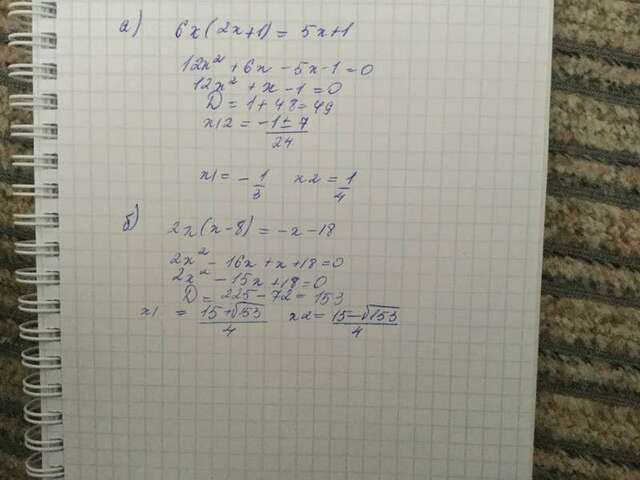 а) 6x(2x+1) = 5x+1
12x² + 6x - 5x - 1 = 0
12x² + x - 1 = 0
D = 1 + 48 = 49
x12 = -1 ± 7 / 24
x1 = - 1/3 x2 = 1/4
б) 2x(x-8) = -x - 18
2x² - 16x + x + 18 = 0
2x² - 15x + 18 = 0
D = 225 - 72 = 153
x1 = 15+√153 / 4 x2 = 15-√153 / 4